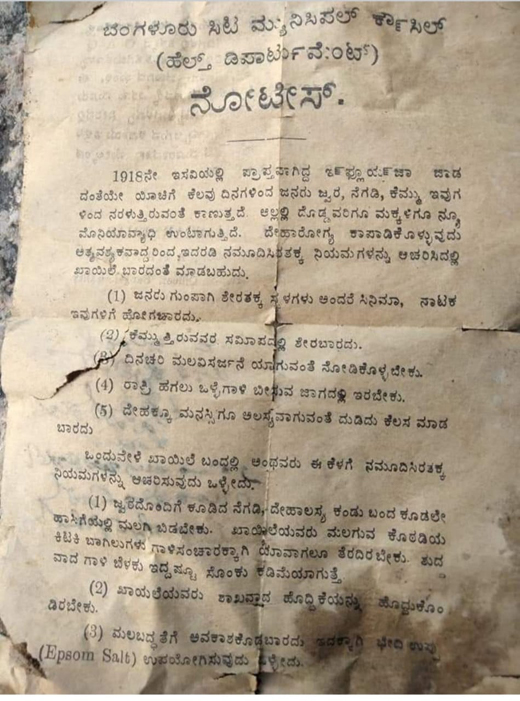 ಬೆಂಗಳೂರು ಸಿಟಿ ಮ್ಯುನಿಸಿಪಲ್ ಕೌನ್ಸಿಲ್
(ಹೆಲ್ತ್ ಡಿಪಾರ್ಟ್ಮೆಂಟ್)
ನೋಟೀಸ್.
1918ನೇ ಇಸವಿಯಲ್ಲಿ ಪ್ರಾಪ್ತವಾಗಿದ್ದ ಇನ್‌ಫ್ಲೂಯೆನ್‌ಜಾ ಜಾಡ
ದಂತೆಯೇ ಯೀಚಿಗೆ ಕೆಲವು ದಿನಗಳಿಂದ ಜನರು ಜ್ವರ, ನೆಗಡಿ, ಕೆಮ್ಮು ಇವುಗ
ಳಿಂದ ನರಳುತ್ತಿರುವಂತೆ ಕಾಣುತ್ತದೆ. ಅಲ್ಲಲ್ಲಿ ದೊಡ್ಡವರಿಗೂ ಮಕ್ಕಳಿಗೂ ನ್ಯೂ
ಮೊನಿಯಾವ್ಯಾಧಿ ಉಂಟಾಗುತ್ತಿದೆ. ದೇಹಾರೋಗ್ಯ ಕಾಪಾಡಿಕೊಳ್ಳುವುದು
ಅತ್ಯವಶ್ಯಕವಾದ್ದರಿಂದ, ಇದರಡಿ ನಮೂದಿಸಿರತಕ್ಕ ನಿಯಮಗಳನ್ನು ಆಚರಿಸಿದಲ್ಲಿ
ಖಾಯಿಲೆ ಬಾರದಂತೆ ಮಾಡಬಹುದು.
(1) ಜನರು ಗುಂಪಾಗಿ ಶೇರತಕ್ಕ ಸ್ಥಳಗಳು ಅಂದರೆ ಸಿನಿಮಾ, ನಾಟಕ
ಇವುಗಳಿಗೆ ಹೋಗಬಾರದು.
(2) ಕೆಮ್ಮುತ್ತಿರುವವರ ಸಮೀಪದಲ್ಲಿ ಶೇರಬಾರದು.
(3) ದಿನಚರಿ ಮಲವಿಸರ್ಜನೆ ಯಾಗುವಂತೆ ನೋಡಿಕೊಳ್ಳಬೇಕು.
(4) ರಾತ್ರಿ ಹಗಲು ಒಳ್ಳೆಗಾಳಿ ಬೀಸುವ ಜಾಗದಲ್ಲಿ ಇರಬೇಕು.
(5) ದೇಹಕ್ಕೂ ಮನಸ್ಸಿಗೂ ಅಲಸ್ಯವಾಗುವಂತೆ ದುಡಿದು ಕೆಲಸ ಮಾಡ
ಬಾರದು
ಒಂದುವೇಳೆ ಖಾಯಿಲೆ ಬಂದಲ್ಲಿ ಅಂಥವರು ಈ ಕೆಳಗೆ ನಮೂದಿಸಿರತಕ್ಕ
ನಿಯಮಗಳನ್ನು ಆಚರಿಸುವುದು ಒಳ್ಳೇದು.
(1) ಜ್ವರದೊಂದಿಗೆ ಕೂಡಿದ ನೆಗಡಿ, ದೇಹಾಲಸ್ಯ ಕಂಡು ಬಂದ ಕೂಡಲೇ
ಹಾಸಿಗೆಯಲ್ಲಿ ಮಲಗಿ ಬಿಡಬೇಕು. ಖಾಯಿಲೆಯವರು ಮಲಗುವ ಕೊಠಡಿಯ
ಕಿಟಕಿ ಬಾಗಿಲುಗಳು ಗಾಳಿಸಂಚಾರಕ್ಕಾಗಿ ಯಾವಾಗಲೂ ತೆರದಿರಬೇಕು. ಶುದ
ವಾದ ಗಾಳಿ ಬೆಳಕು ಇದ್ದಷ್ಟೂ ಸೊಂಕು ಕಡಿಮೆಯಾಗುತ್ತೆ
(2) ಖಾಯಲೆಯವರು ಶಾಖವಾದ ಹೊದ್ದಿಕೆಯನ್ನು ಹೊದ್ದುಕೊಂ
ಡಿರಬೇಕು.
(3) ಮಲಬದ್ಧತೆಗೆ ಅವಕಾಶಕೊಡಬಾರದು ಇದಕ್ಕಾಗಿ ಭೇದಿ ಉಪ್ಪು
(Epsom Salt) ಉಪಯೋಗಿಸುವುದು ಒಳ್ಳೇದು.